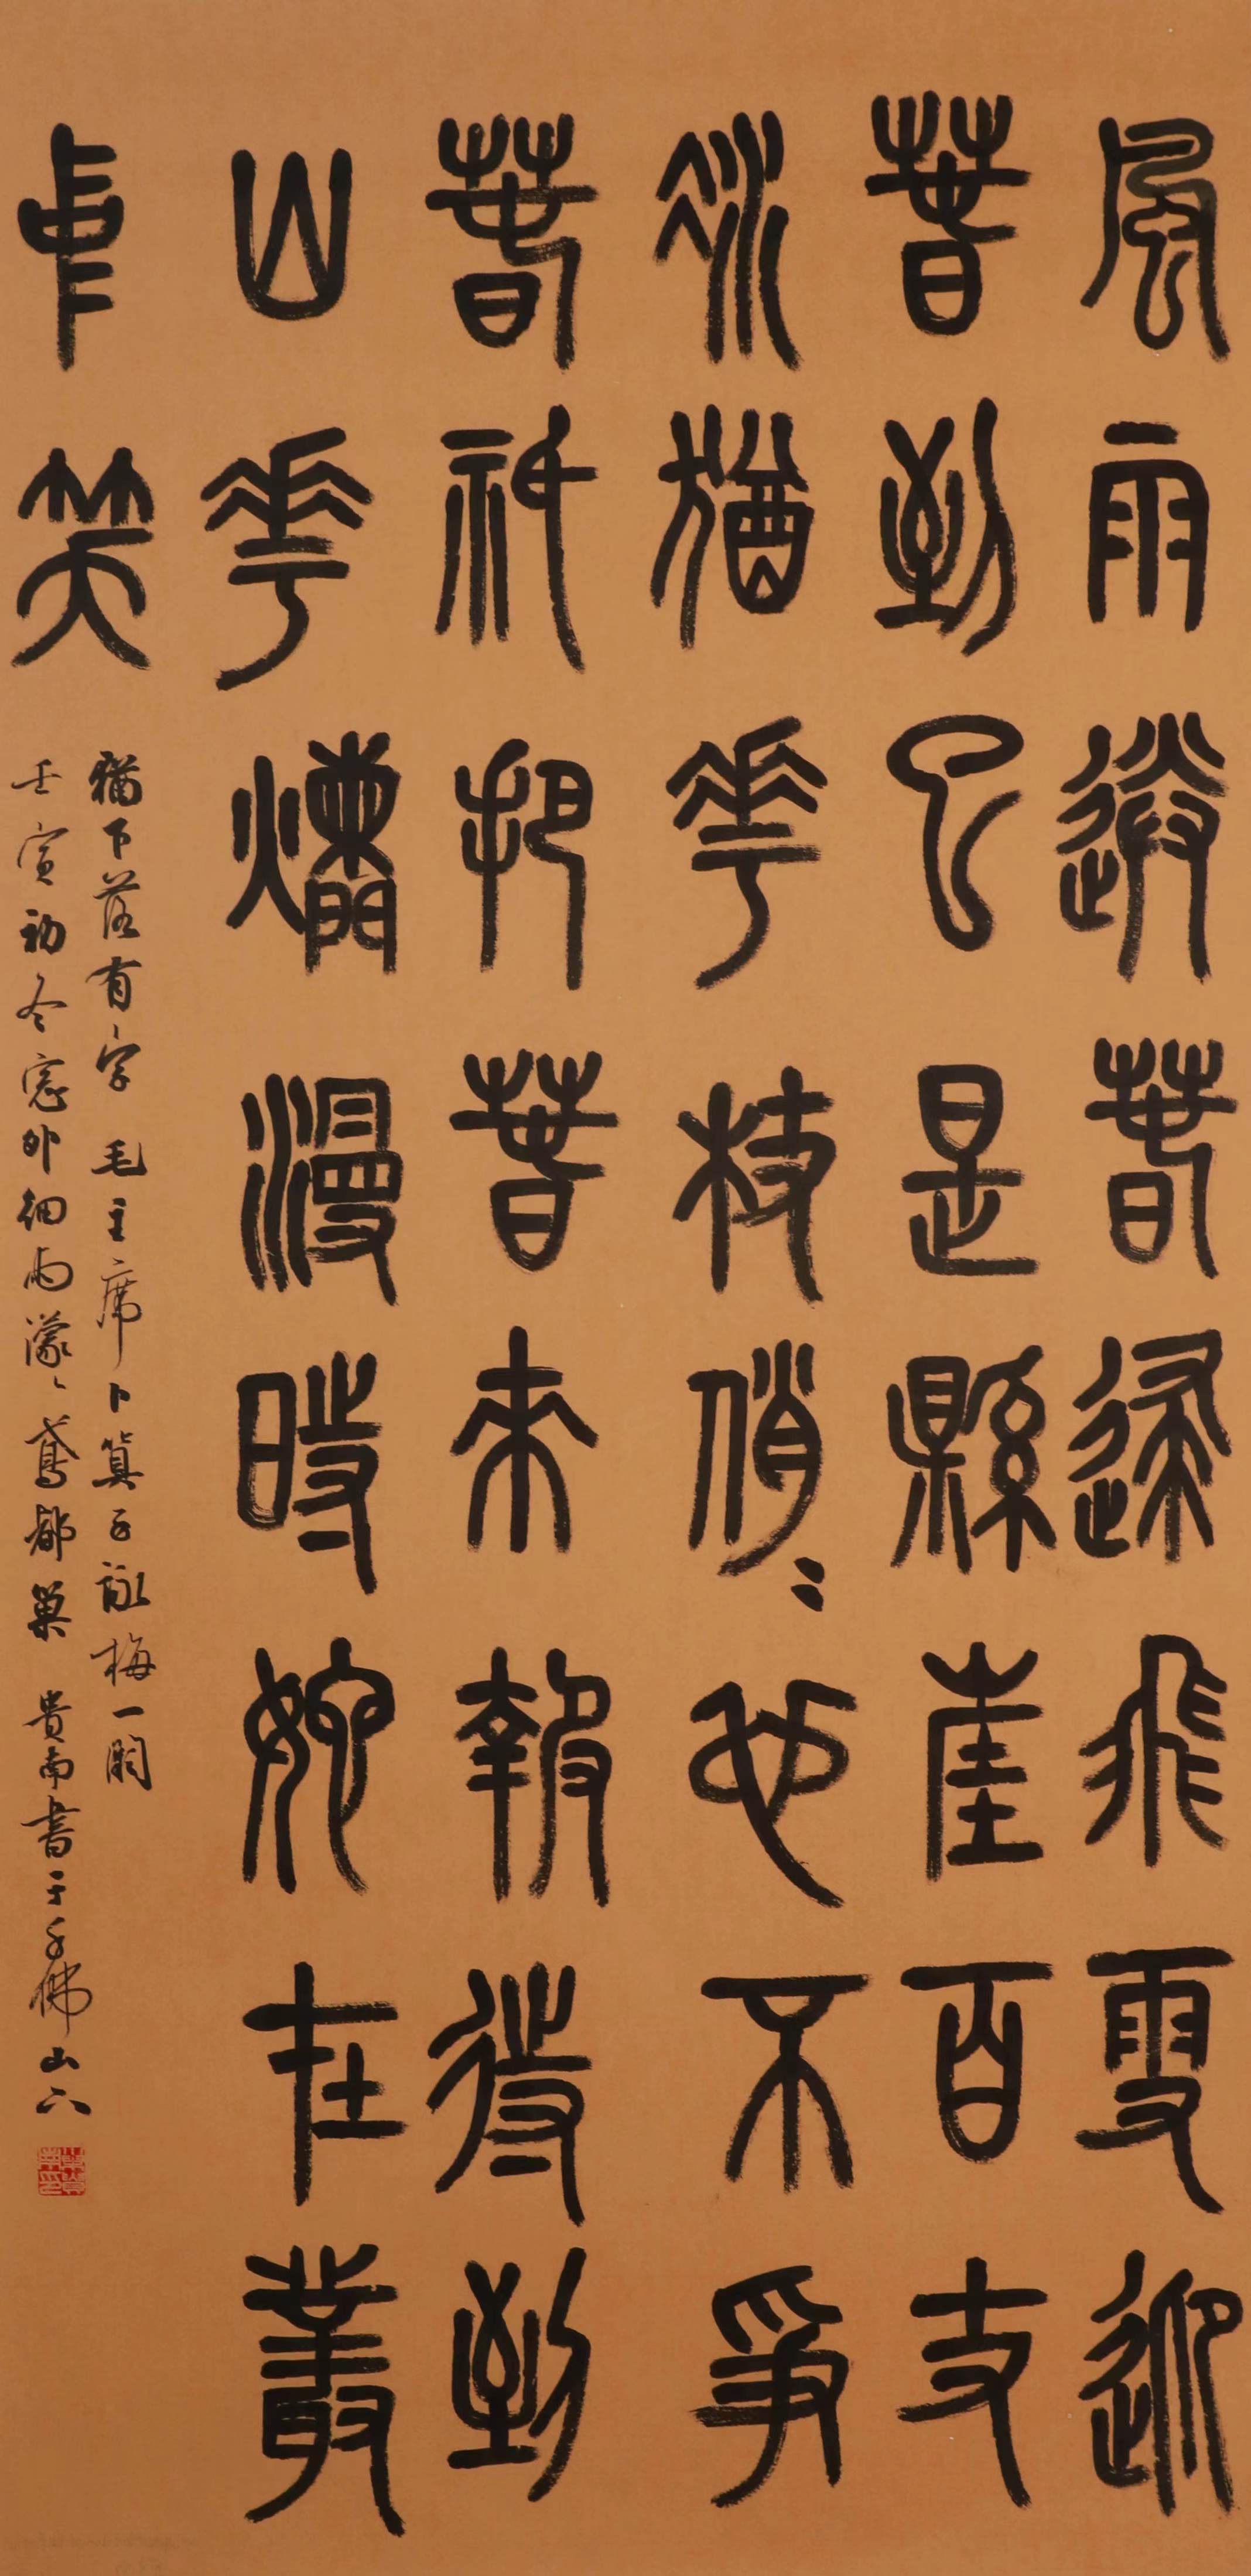 風雨送春歸飛雪迎
春到已是縣崖百丈
冰猶花枝俏〻也不爭
春祇把春來報待到
山花爛漫時她在叢
中笑
猶下落有字 毛主席卜算子詠梅一闋
壬寅初冬窓外細雨濛〻鳶都巢貴南書于千佛山下